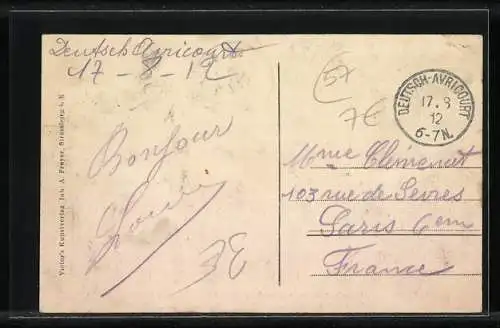 Deutsch Avricourt
17-8-12
Bonjour
Louise
57
7€
3E
DEUTSCH-AVRICOURT
17. 8
12
6-7N.
Mme Clément
103 rue de Sevres
Paris 6em
France
Victor's Kunstverlag Joh. A. Preyer, Strassburg i. E.